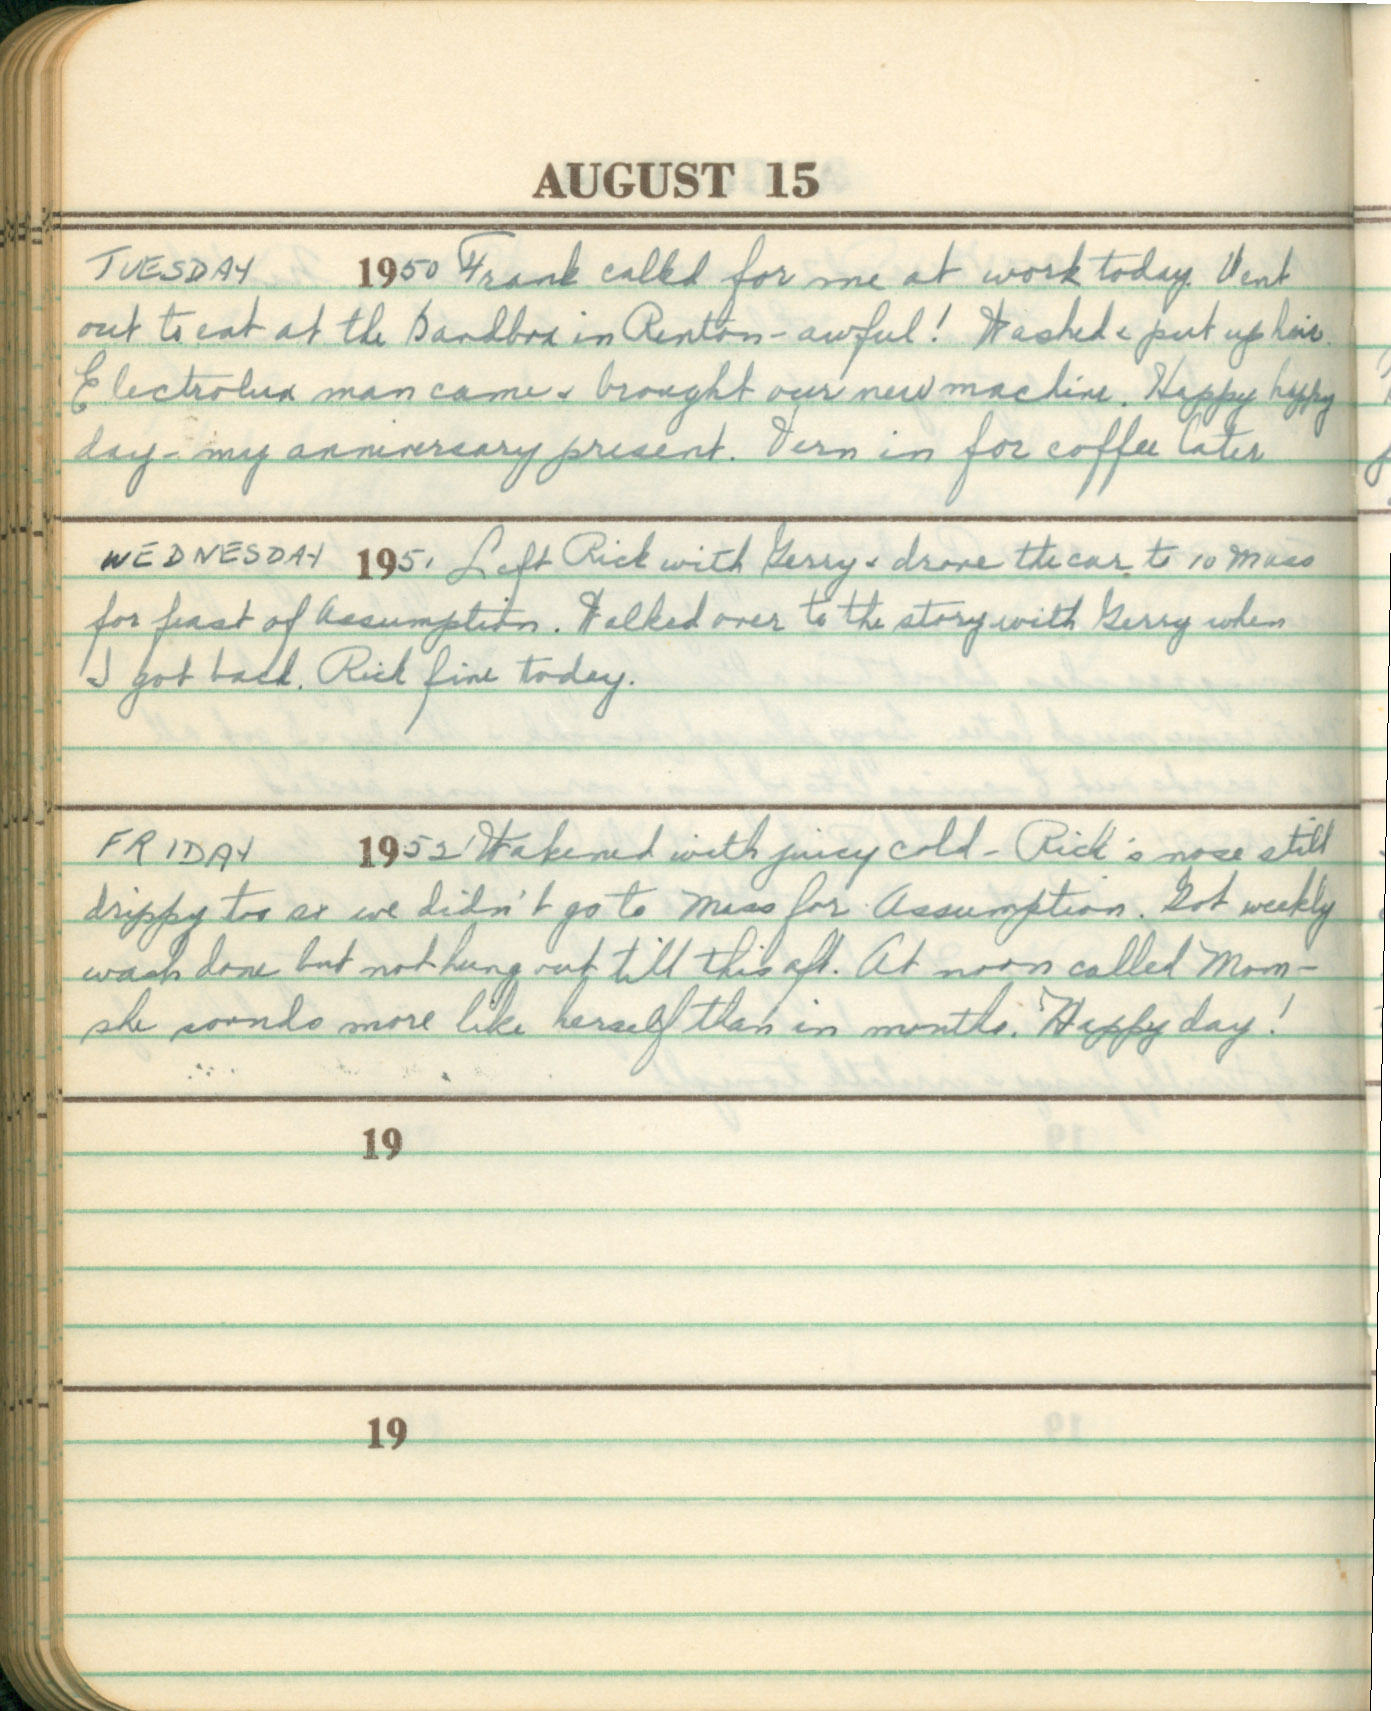 AUGUST 15
TUESDAY 1950 Frank called for me at work today. Went
out to eat at the Sandbox in Renton - awful! Washed & put up hair.
Electrolux man came & brought our new machine. Happy happy
day - my anniversary present. Vern in for coffee later
WEDNESDAY 1951 Left Rick with Gerry & drove the car to 10 Mass
for feast of Assumption. Walked over to the story with Gerry when
I got back. Rick fine today.
FRIDAY 1952 Wakened with juicy cold - Rick's nose still
drippy too so we didn't go to Mass for Assumption. Got weekly
wash done but not hung out till this aft. At noon called Mom -
she sounds more like herself than in months. Happy day!
19
19